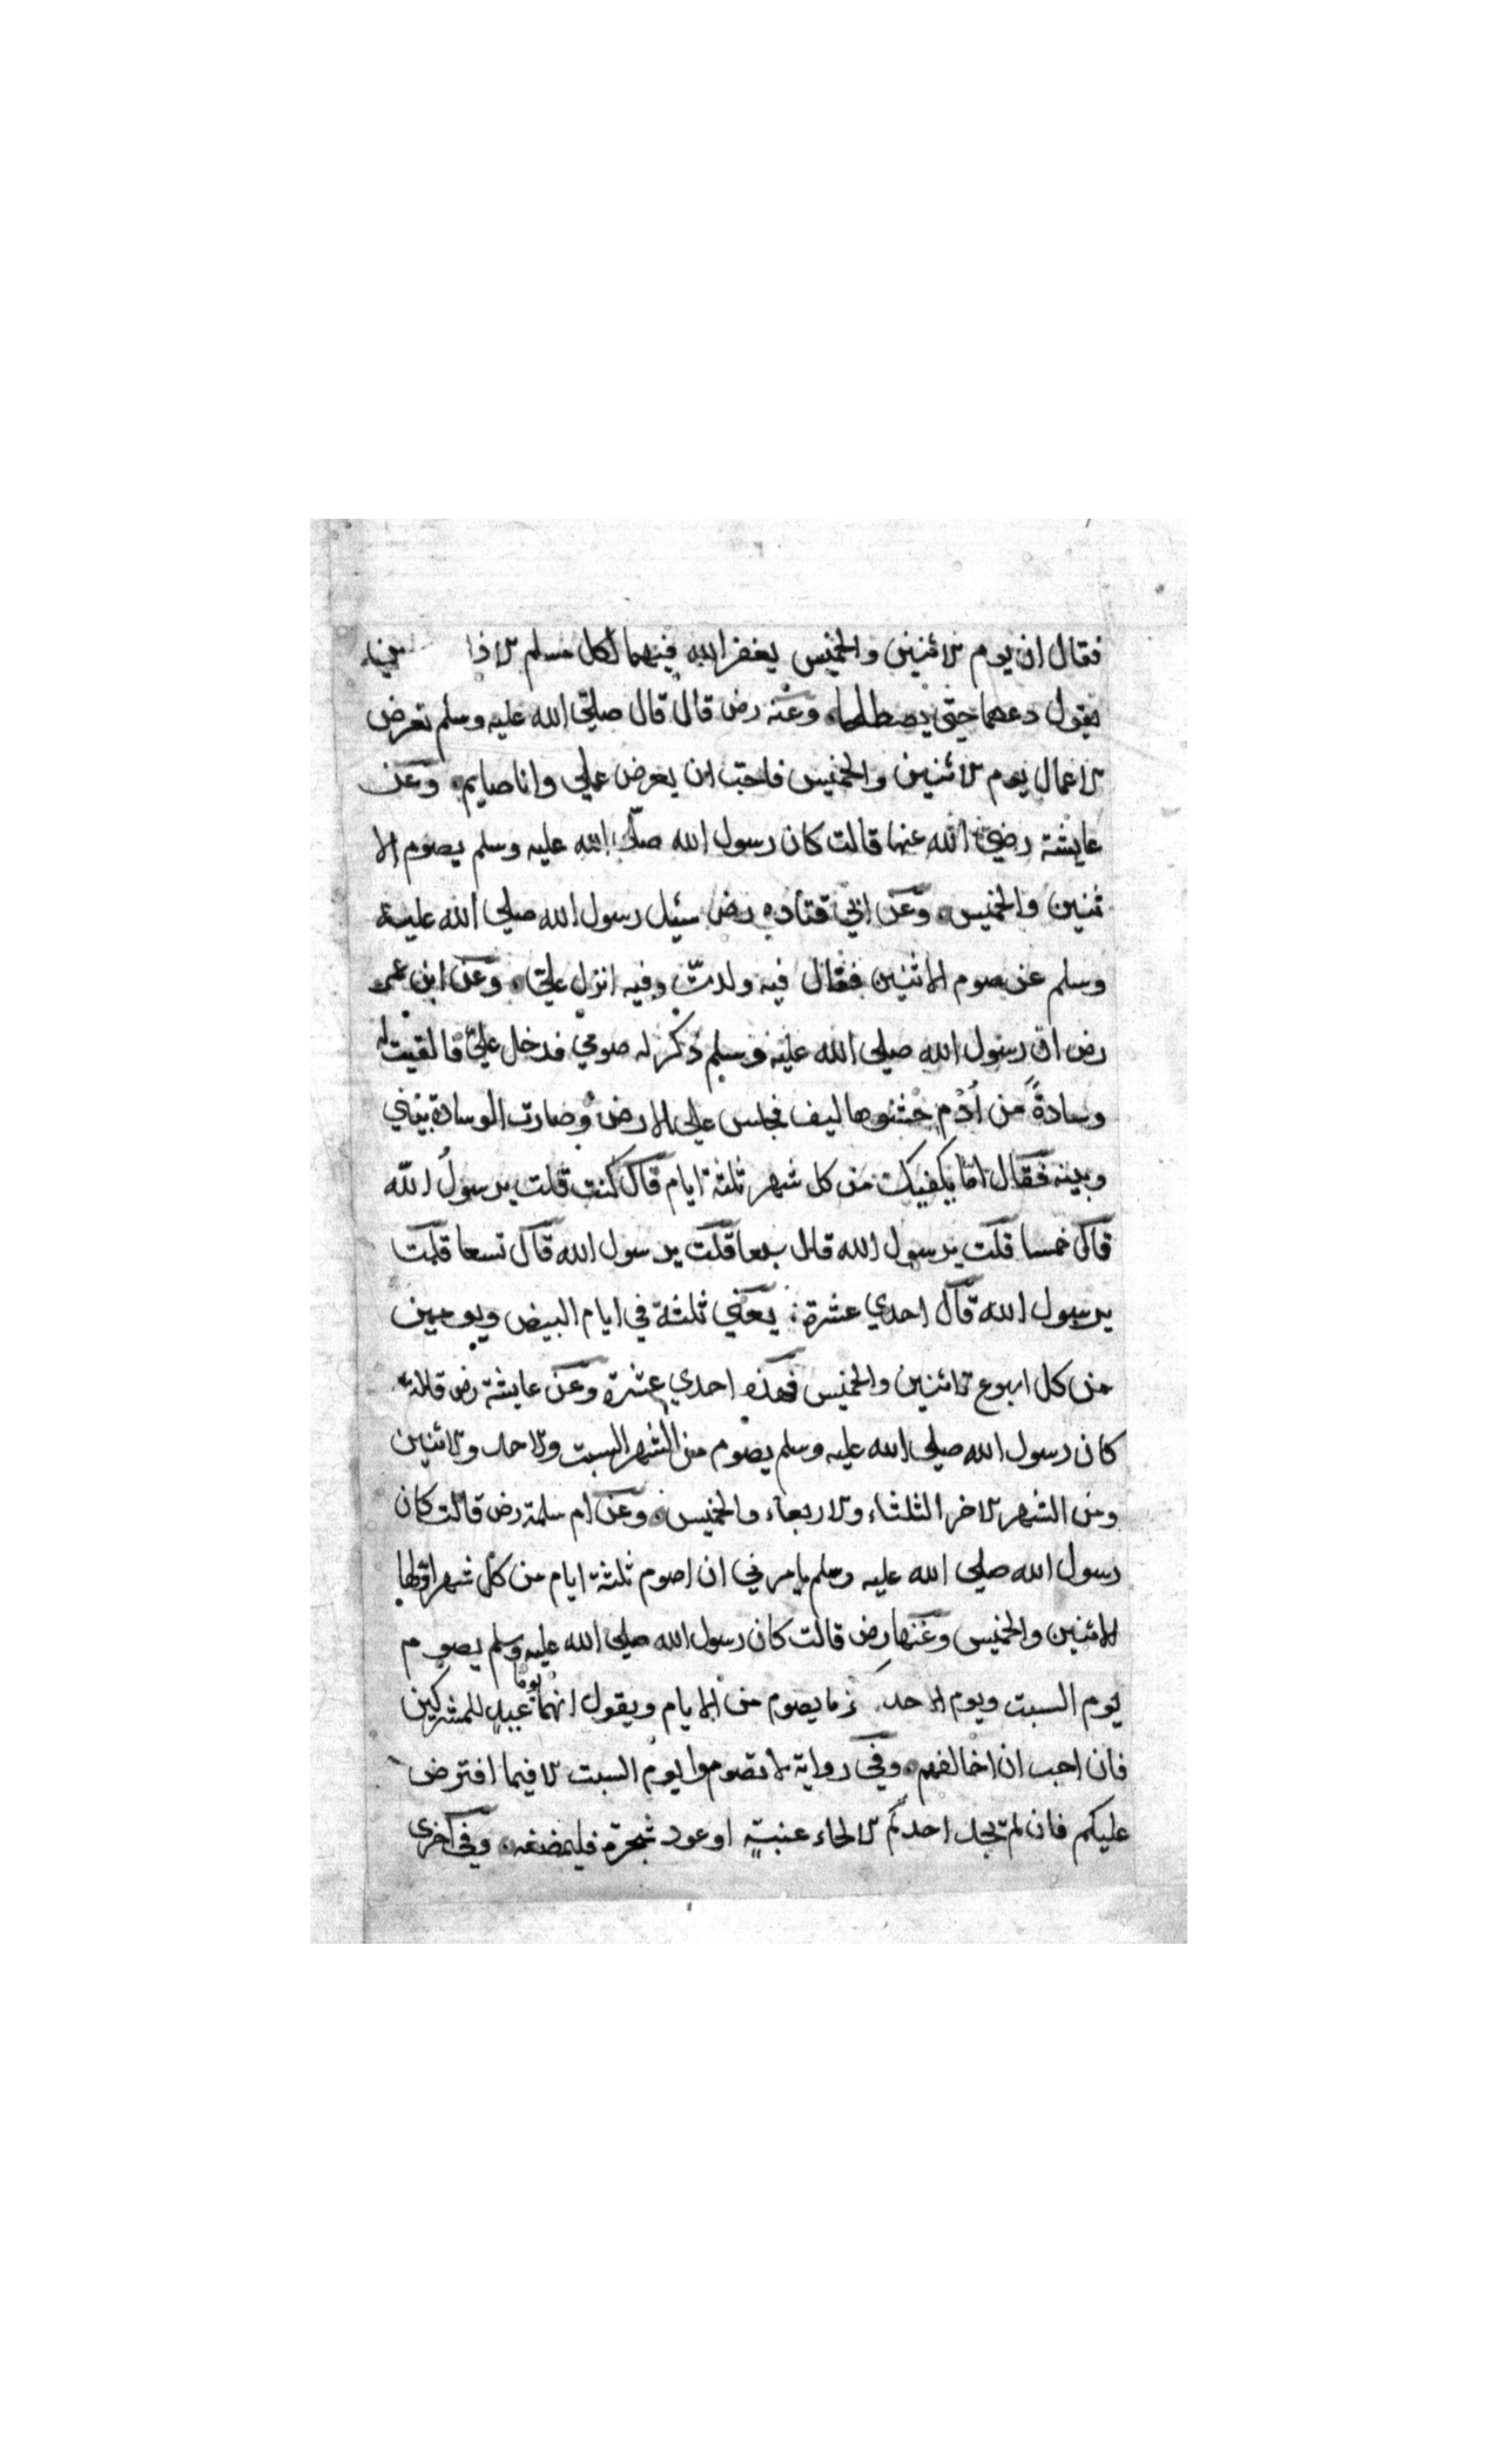 فقال ان يوم الاثنين والخميس يغفر الله فيهما لكل مسلم الا ذا
يقول دعهما حتى يصطلحا وعنه رض قال قال صلى الله عليه وسلم تعرض
الاعمال يوم الاثنين والخميس فاحب ان يعرض عملي وانا صايم وعن
عايشة رضي الله عنها قالت كان رسول الله صلى الله عليه وسلم يصوم الا
ثنين والخميس وعن ابي قتاده رض سئيل رسول الله صلى الله عليه
وسلم عن صوم الاثنين فقال فيه ولدت وفيه انزل علي وعن ابن عمر
رض ان رسول الله صلى الله عليه وسلم ذكر له صومي فدخل علي فالقيت له
وسادةً من أدم حشوها ليف فجلس على الارض وصارت الوسادة بيني
وبينه فقال اما يكفيك من كل شهر ثلثة ايام قال كنت قلت يرسول الله
قال خمسا قلت يرسول الله قال سبعا قلت يرسول الله قال تسعا قلت
يرسول الله قال احدي عشرة يعني ثلثة في ايام البيض ويومين
من كل اسبوع الاثنين والخميس فهذه احدي عشرة وعن عايشة رض قالت
كان رسول الله صلى الله عليه وسلم يصوم من الشهر السبت والاحد والاثنين
ومن الشهر الاخر الثلثاء والاربعاء والخميس وعن ام سلمة رض قالت كان
رسول الله صلى الله عليه وسلم يامرني ان اصوم ثلثة ايام من كل شهر اولها
الاثنين والخميس وعنها رض قالت كان رسول الله صلى الله عليه وسلم يصوم
يوم السبت ويوم الاحد ما يصوم من الايام ويقول انهما يوما عيدٍ للمشركين
فان احب ان اخالفهم وفي رواية لا تصوموا يوم السبت الا فيما افترض
عليكم فان لم يجد احدكم الا لحاء عنبةٍ او عود شجرة فليمضغه وفي اخرى